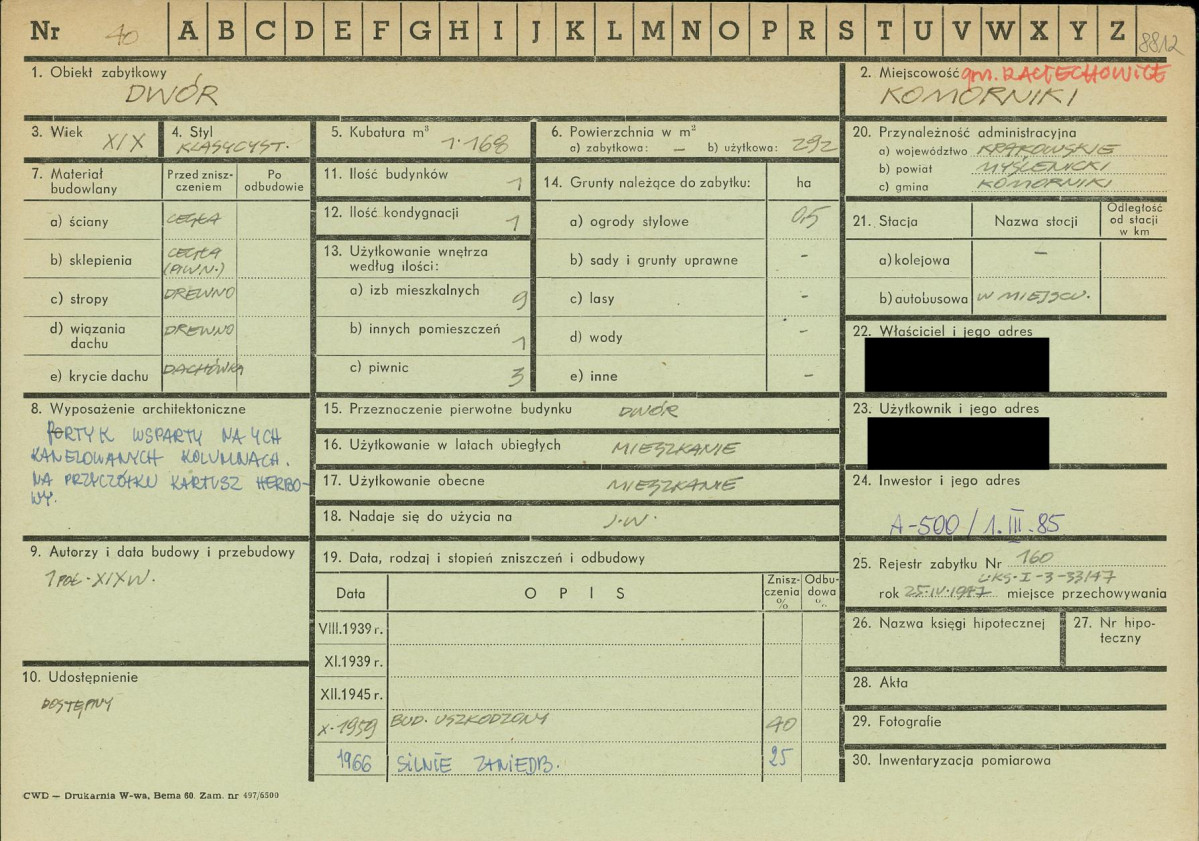 Nr 40 A B C D E F G H I J K L M N O P R S T U V W X Y Z 8812
1. Obiekt zabytkowy
DWÓR
2. Miejscowość gm. RACIECHOWICE
KOMORNIKI
3. Wiek XIX
4. Styl
KLASYCYST.
5. Kubatura m³
1·168
6. Powierzchnia w m²
a) zabytkowa: – b) użytkowa: 292
7. Materiał budowlany
Przed znisz-
czeniem
Po
odbudowie
a) ściany CEGŁA
b) sklepienia CEGŁA
(PIWN.)
c) stropy DREWNO
d) wiązania
dachu DREWNO
e) krycie dachu DACHÓWKA
8. Wyposażenie architektoniczne
PORTYK WSPARTY NA 4CH
KANELOWANYCH KOLUMNACH.
NA PRZYCZÓŁKU KARTUSZ HERBO-
WY.
9. Autorzy i data budowy i przebudowy
1 POŁ. XIX W.
10. Udostępnienie
DOSTĘPNY
11. Ilość budynków 1
12. Ilość kondygnacji 1
13. Użytkowanie wnętrza
według ilości:
a) izb mieszkalnych 9
b) innych pomieszczeń 1
c) piwnic 3
14. Grunty należące do zabytku: ha
a) ogrody stylowe 0,5
b) sady i grunty uprawne -
c) lasy -
d) wody -
e) inne -
15. Przeznaczenie pierwotne budynku DWÓR
16. Użytkowanie w latach ubiegłych MIESZKANIE
17. Użytkowanie obecne MIESZKANIE
18. Nadaje się do użycia na J.W.
19. Data, rodzaj i stopień zniszczeń i odbudowy
Data OPIS Znisz-
czenia
% Odbu-
dowa
%
VIII.1939 r.
XI.1939 r.
XII.1945 r.
X-1959 BUD. USZKODZONY 40
1966 SILNIE ZANIEDB. 25
20. Przynależność administracyjna
a) województwo KRAKOWSKIE
b) powiat MYŚLENICKI
c) gmina KOMORNIKI
21. Stacja Nazwa stacji Odległość
od stacji
w km
a) kolejowa –
b) autobusowa W MIEJSCU.
22. Właściciel i jego adres
23. Użytkownik i jego adres
24. Inwestor i jego adres
A-500 / 1. III. 85
25. Rejestr zabytku Nr 160
UKS-I-3-33/47
rok 25.IV.1947 miejsce przechowywania
26. Nazwa księgi hipotecznej
27. Nr hipo-
teczny
28. Akta
29. Fotografie
30. Inwentaryzacja pomiarowa
CWD — Drukarnia W-wa, Bema 60. Zam. nr 497/6500